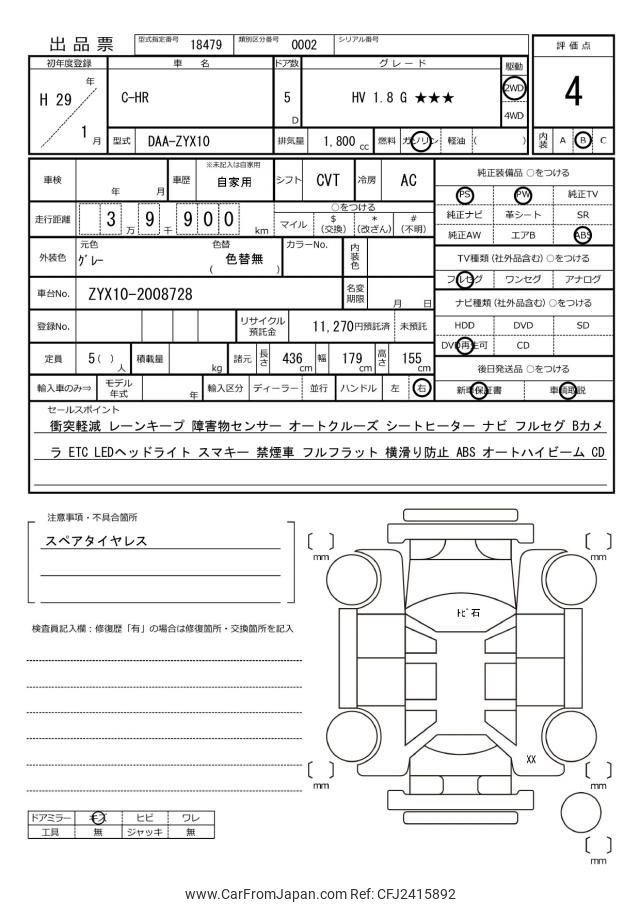 出品票 型式指定番号 18479 類別区分番号 0002 シリアル番号
評価点
4
内装 A B C
初年度登録 車名 ドア数 グレード 駆動
H 29 年 1 月
C-HR 5 D HV 1.8 G ★★★ 2WD
4WD
型式 DAA-ZYX10 排気量 1,800 cc 燃料 ガソリン 軽油 ( )
車検 年 月 車歴 ※未記入は自家用 自家用 シフト CVT 冷房 AC
走行距離 3 万 9 千 9 0 0 km ○をつける
マイル $ (交換) * (改ざん) # (不明)
外装色 元色 グレー 色替 ( 色替無 ) カラーNo. 内装色
車台No. ZYX10-2008728 名変期限 月 日
登録No. リサイクル預託金 11,270円預託済 未預託
定員 5( ) 人 積載量 kg 諸元 長さ 436 cm 幅 179 cm 高さ 155 cm
輸入車のみ⇒ モデル年式 年 輸入区分 ディーラー 並行 ハンドル 左 右
純正装備品 ○をつける
PS PW 純正TV
純正ナビ 革シート SR
純正AW エアB ABS
TV種類(社外品含む) ○をつける
フルセグ ワンセグ アナログ
ナビ種類(社外品含む) ○をつける
HDD DVD SD
DVD再生可 CD
後日発送品 ○をつける
新車保証書 車輌取説
セールスポイント
衝突軽減 レーンキープ 障害物センサー オートクルーズ シートヒーター ナビ フルセグ Bカメ
ラ ETC LEDヘッドライト スマキー 禁煙車 フルフラット 横滑り防止 ABS オートハイビーム CD
注意事項・不具合箇所
スペアタイヤレス
検査員記入欄:修復歴「有」の場合は修復箇所・交換箇所を記入
ドアミラー キズ ヒビ ワレ
工具 無 ジャッキ 無
[ ] mm
[ ] mm
ﾄﾋﾞ石
XX
[ ] mm
[ ] mm
[ ] mm
www.CarFromJapan.com Ref: CFJ2415892